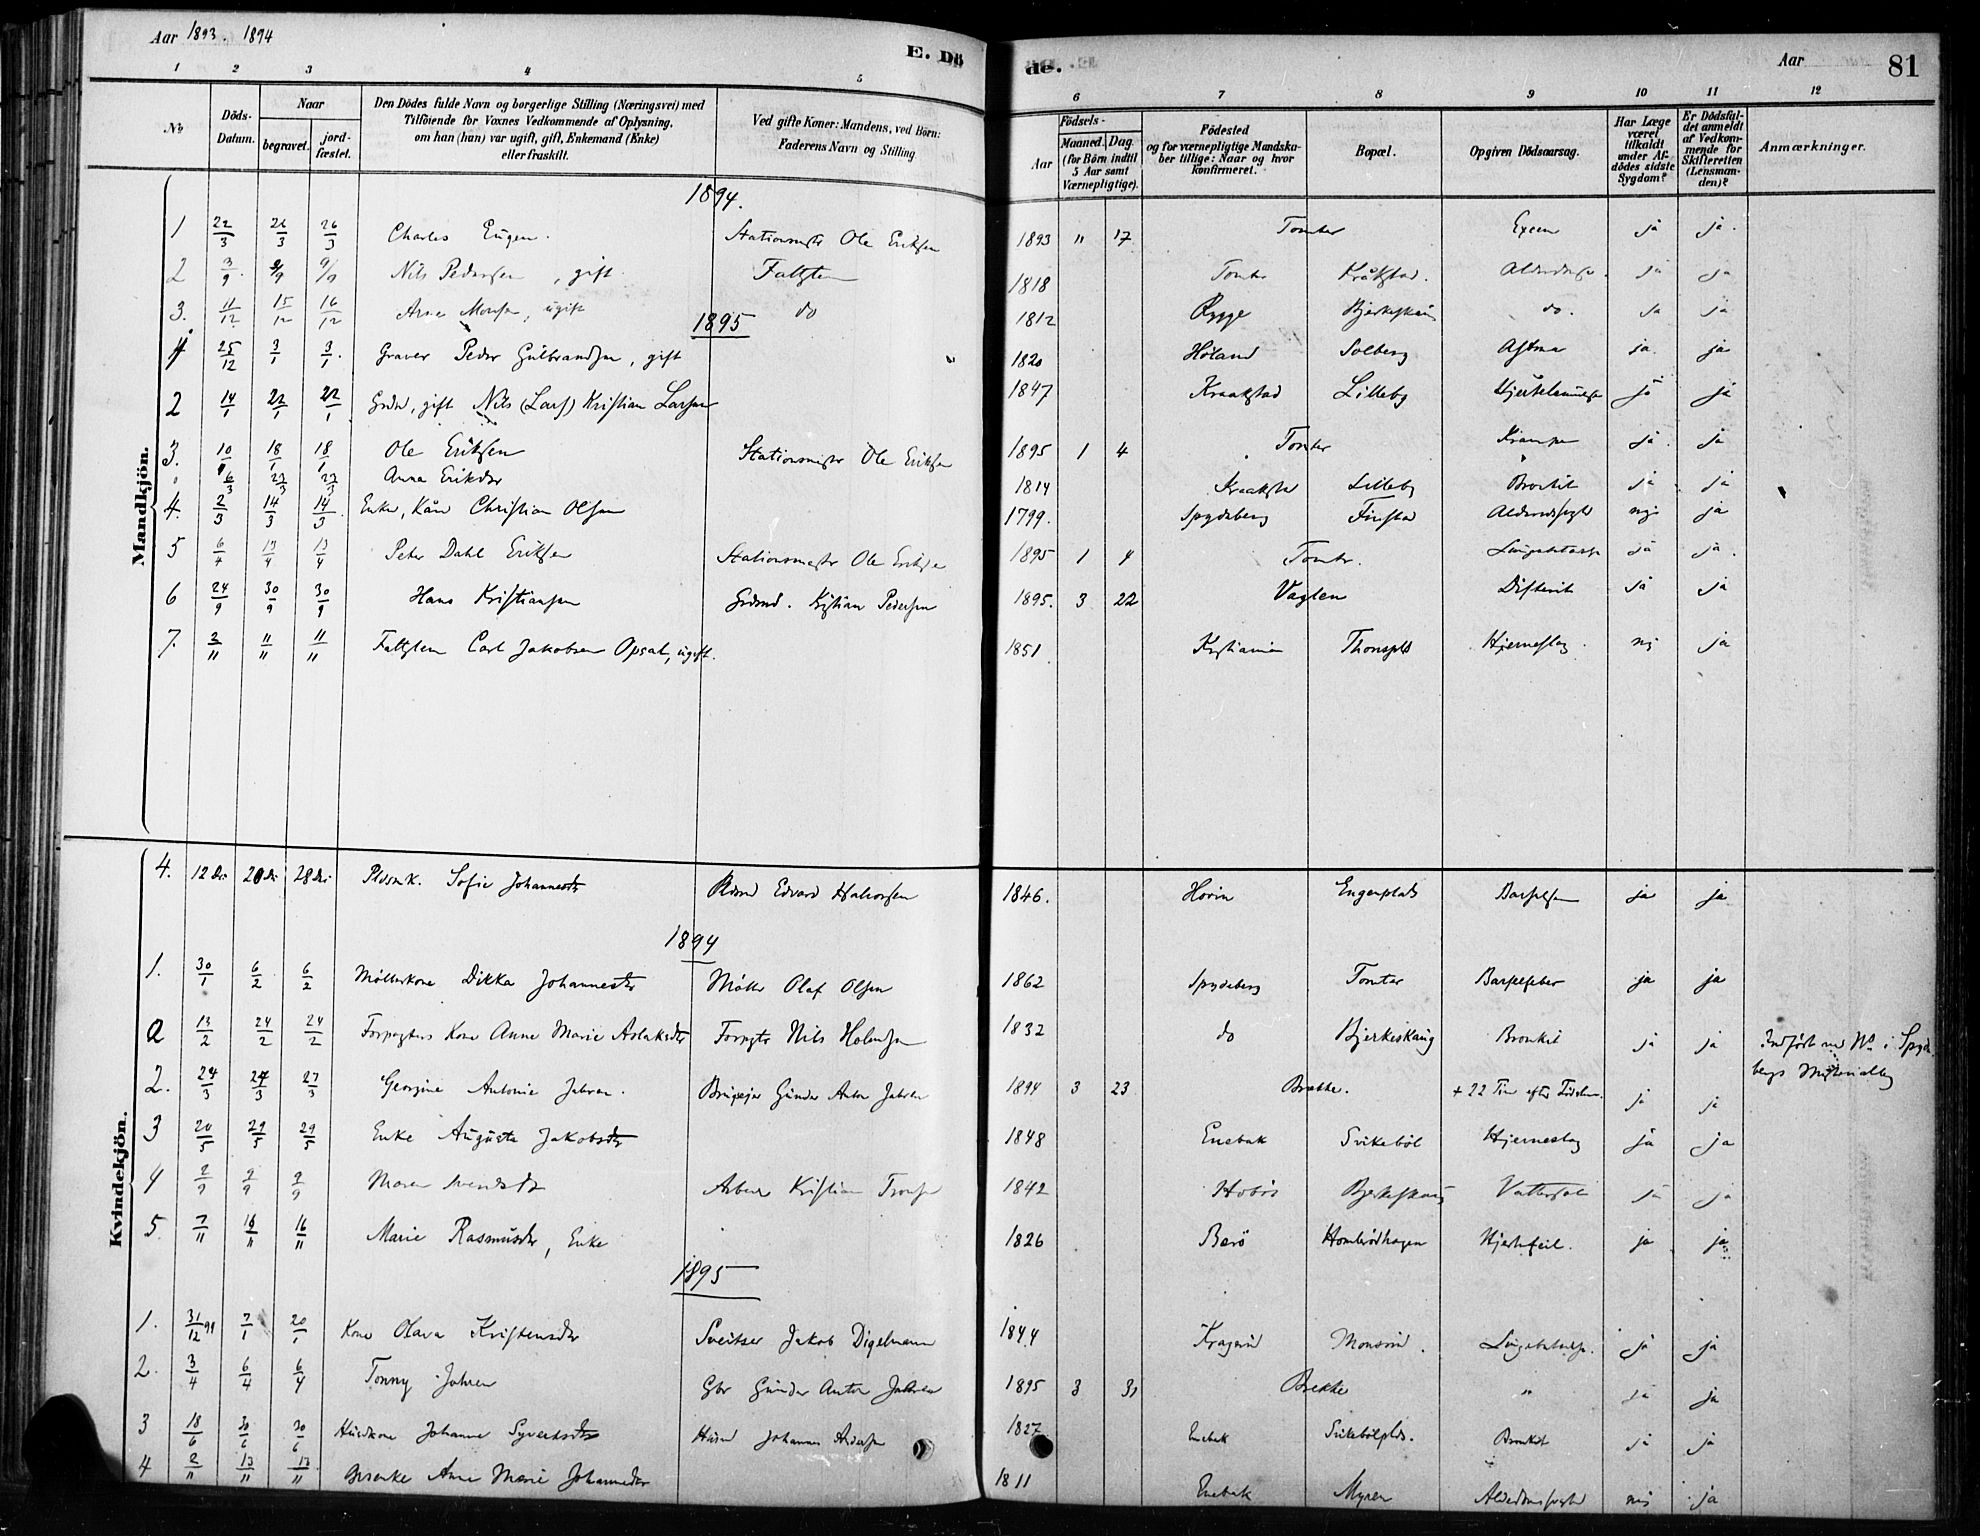 Aar 1893. 1894
E. Döde.
Aar
81
1 2 3 4 5 6 7 8 9 10 11 12
No
Döds-Datum.
Naar
begravet.
jordfæstet.
Den Dödes fulde Navn og borgerlige Stilling (Næringsvei) med
Tilföiende for Voxnes Vedkommende af Oplysning,
om han (hun) var ugift, gift, Enkemand (Enke)
eller fraskilt.
Ved gifte Koner: Mandens, ved Börn:
Faderens Navn og Stilling
Födsels-
Aar
Maaned. Dag
(for Börn indtil
5 Aar samt
Værnepligtige).
Födested
og for værnepligtige Mandskaber tillige: Naar og hvor
konfirmeret.
Bopæl.
Opgiven Dödsaarsag.
Har Læge
været
tilkaldt
under Afdödes sidste
Sygdom?
Er Dödsfaldet anmeldt
af Vedkommende for
Skifteretten
(Lensmanden)?
Anmærkninger.
Mandkjön.
1894.
1 22/3 26/3 26/3 Charles Eugen. Stationsmstr Ole Eriksen 1893 " 17 Tomter ja ja.
2 3/9 9/9 9/9 Nils Pedersen, gift Fattiglem 1818 Tomter Kråkstad. ja ja
3. 11/12 15/12 16/12 Arne Monsen, ugift do 1812 Rygge Bjerkeskaug do. ja ja
1895
1 25/12 3/1 3/1. Graver Peder Gulbrandsen, gift 1820 Høland Solberg Astma ja ja
2 14/1 22/1 22/1 Grdbr, gift Nils (Lars) Kristian Larsen 1847 Kraakstad Lilleby ja ja
3. 10/1 18/1 18/1 Ole Eriksen Stationsmstr Ole Eriksen 1895 1 4 Tomter Krampe ja. ja
6/3 23/3 23/3 Anna Eriksdtr 1814 Kraakstad Lilleby Bronkit ja ja
4. 2/3 14/3 14/3. Christian Olsen 1799. Spydeberg Finstad nej ja
5 6/4 13/4 13/4 Peter Dahl Eriksen Stationsmester Ole Eriksen 1895 1 4 Tomter. ja ja.
6 24/9 30/9 30/9 Hans Kristiansen Grdmd. Kristian Pedersen 1895. 3 22 Vaglen Difterit ja ja
7. 2/11 11/11 11/11 Fattiglem Carl Jakobsen Opsal, ugift. 1851 Kristiania Hjerneslag. nej ja
Kvindekjön.
4. 12 Des 28 Des 28 Des Pldsmk. Sofie Johannesdtr Pldsmd Edvard Halvorsen 1846. Engerplads ja ja
1894
1. 30/1 6/2 6/2 Møllerkone Dikka Johannesdtr Møller Olaf Olsen 1862 Spydeberg Tomter Barselfeber ja ja
a 13/2 24/2 24/2 Forpagters Kone Anne Marie Aslaksdtr Forpagter Nils Holmsen 1832 do Bjerkeskaug Bronkit ja ja Indført med No i Spydebergs Ministerialbog
2. 24/3 27/3 27/3 Georgine Antonie Jahren. Brugseier Gunder Anton Jahren 1894 3 23 Brekke. + 22 Tim efter Fødslen. ja ja
3 20/5 29/5 29/5 Enke Augusta Jakobsdtr 1848 Enebak Svikebøl Hjerneslag ja ja
4 2/9 9/9 9/9 Maren Svendsdtr Arbeider Kristian 1842 Hobøl Bjerkeskaug Vattersot ja ja
5. 7/11 16/11 16/11 Marie Rasmusdtr, Enke 1826 Hjertefeil. ja ja
1895
1. 31/12 94 7/1 20/1 Kone Olava Kristensdtr Sveitser Jakob Digelmann 1844 Kragerø ja ja
2. 3/4 6/4 6/4 Tonny Jahren Gbr Gunder Anton Jahren 1895 3 31 Brekke " ja ja
3 18/6 30/6 30/6 Husmkone Johanne Syvertsdtr Husmd Johannes Andersen 1827 Enebak Svikebølplds. Bronkit ja ja
4 2/11 13/11 13/11 Anne Marie Johannesdtr 1811 Enebak Myren nej ja